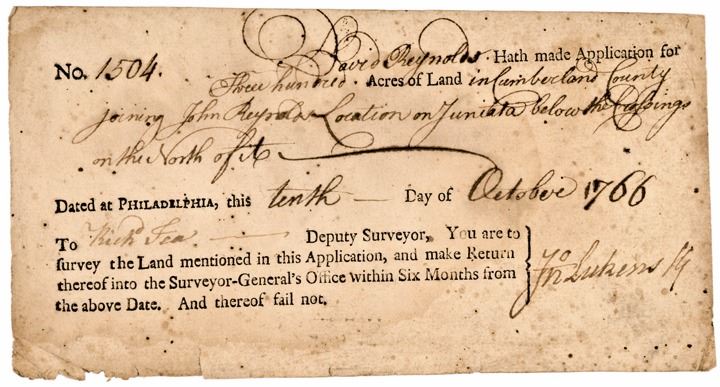 No. 1504. David Reynolds. Hath made Application for
Three hundred. Acres of Land in Cumberland County
joining John Reynolds Location on Juniata below the Crossings
on the North of it
Dated at PHILADELPHIA, this tenth — Day of October 1766
To Richd Tea — Deputy Surveyor, You are to
survey the Land mentioned in this Application, and make Return
thereof into the Surveyor-General's Office within Six Months from
the above Date. And thereof fail not.
Jno Lukens SG